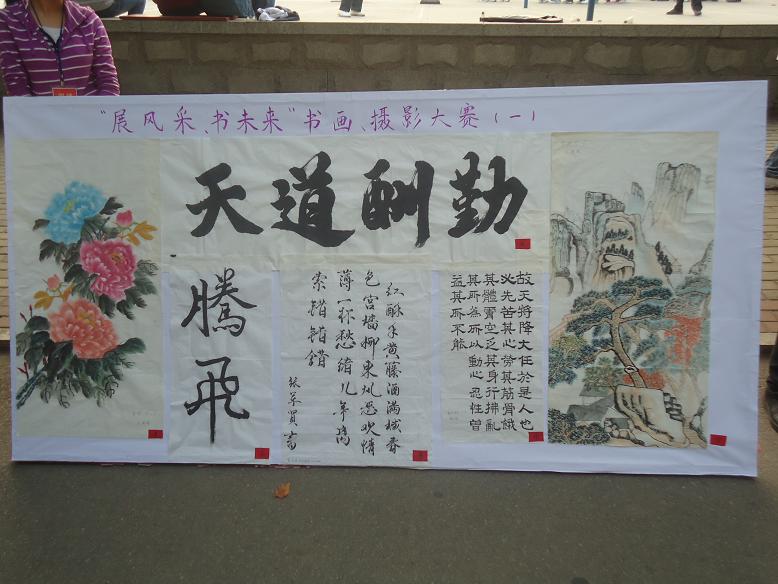 “展风采、书未来”书画、摄影大赛（一）
天道酬勤
騰飛
红酥手黄藤酒满城春
色宫墙柳东风恶欢情
薄一杯愁绪几年离
索错错错
故天将降大任於是人也
必先苦其心勞其筋骨餓
其體膚空乏其身行拂亂
其所為所以動心忍性曾
益其所不能